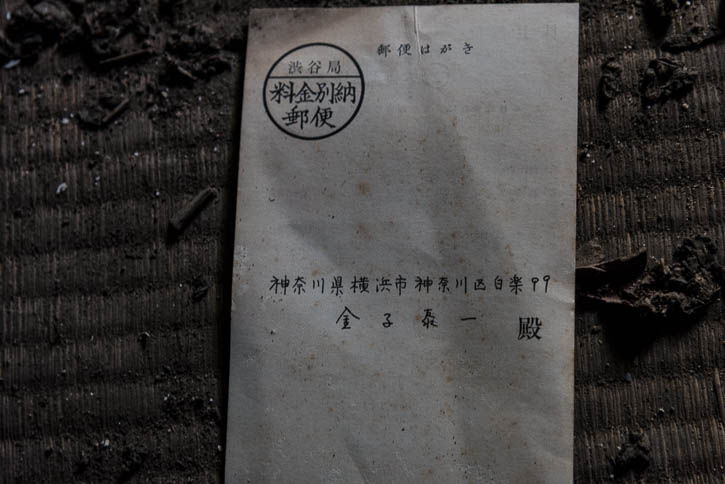 郵便はがき
渋谷局
料金別納
郵便
神奈川県横浜市神奈川区白楽99
金子泰一 殿